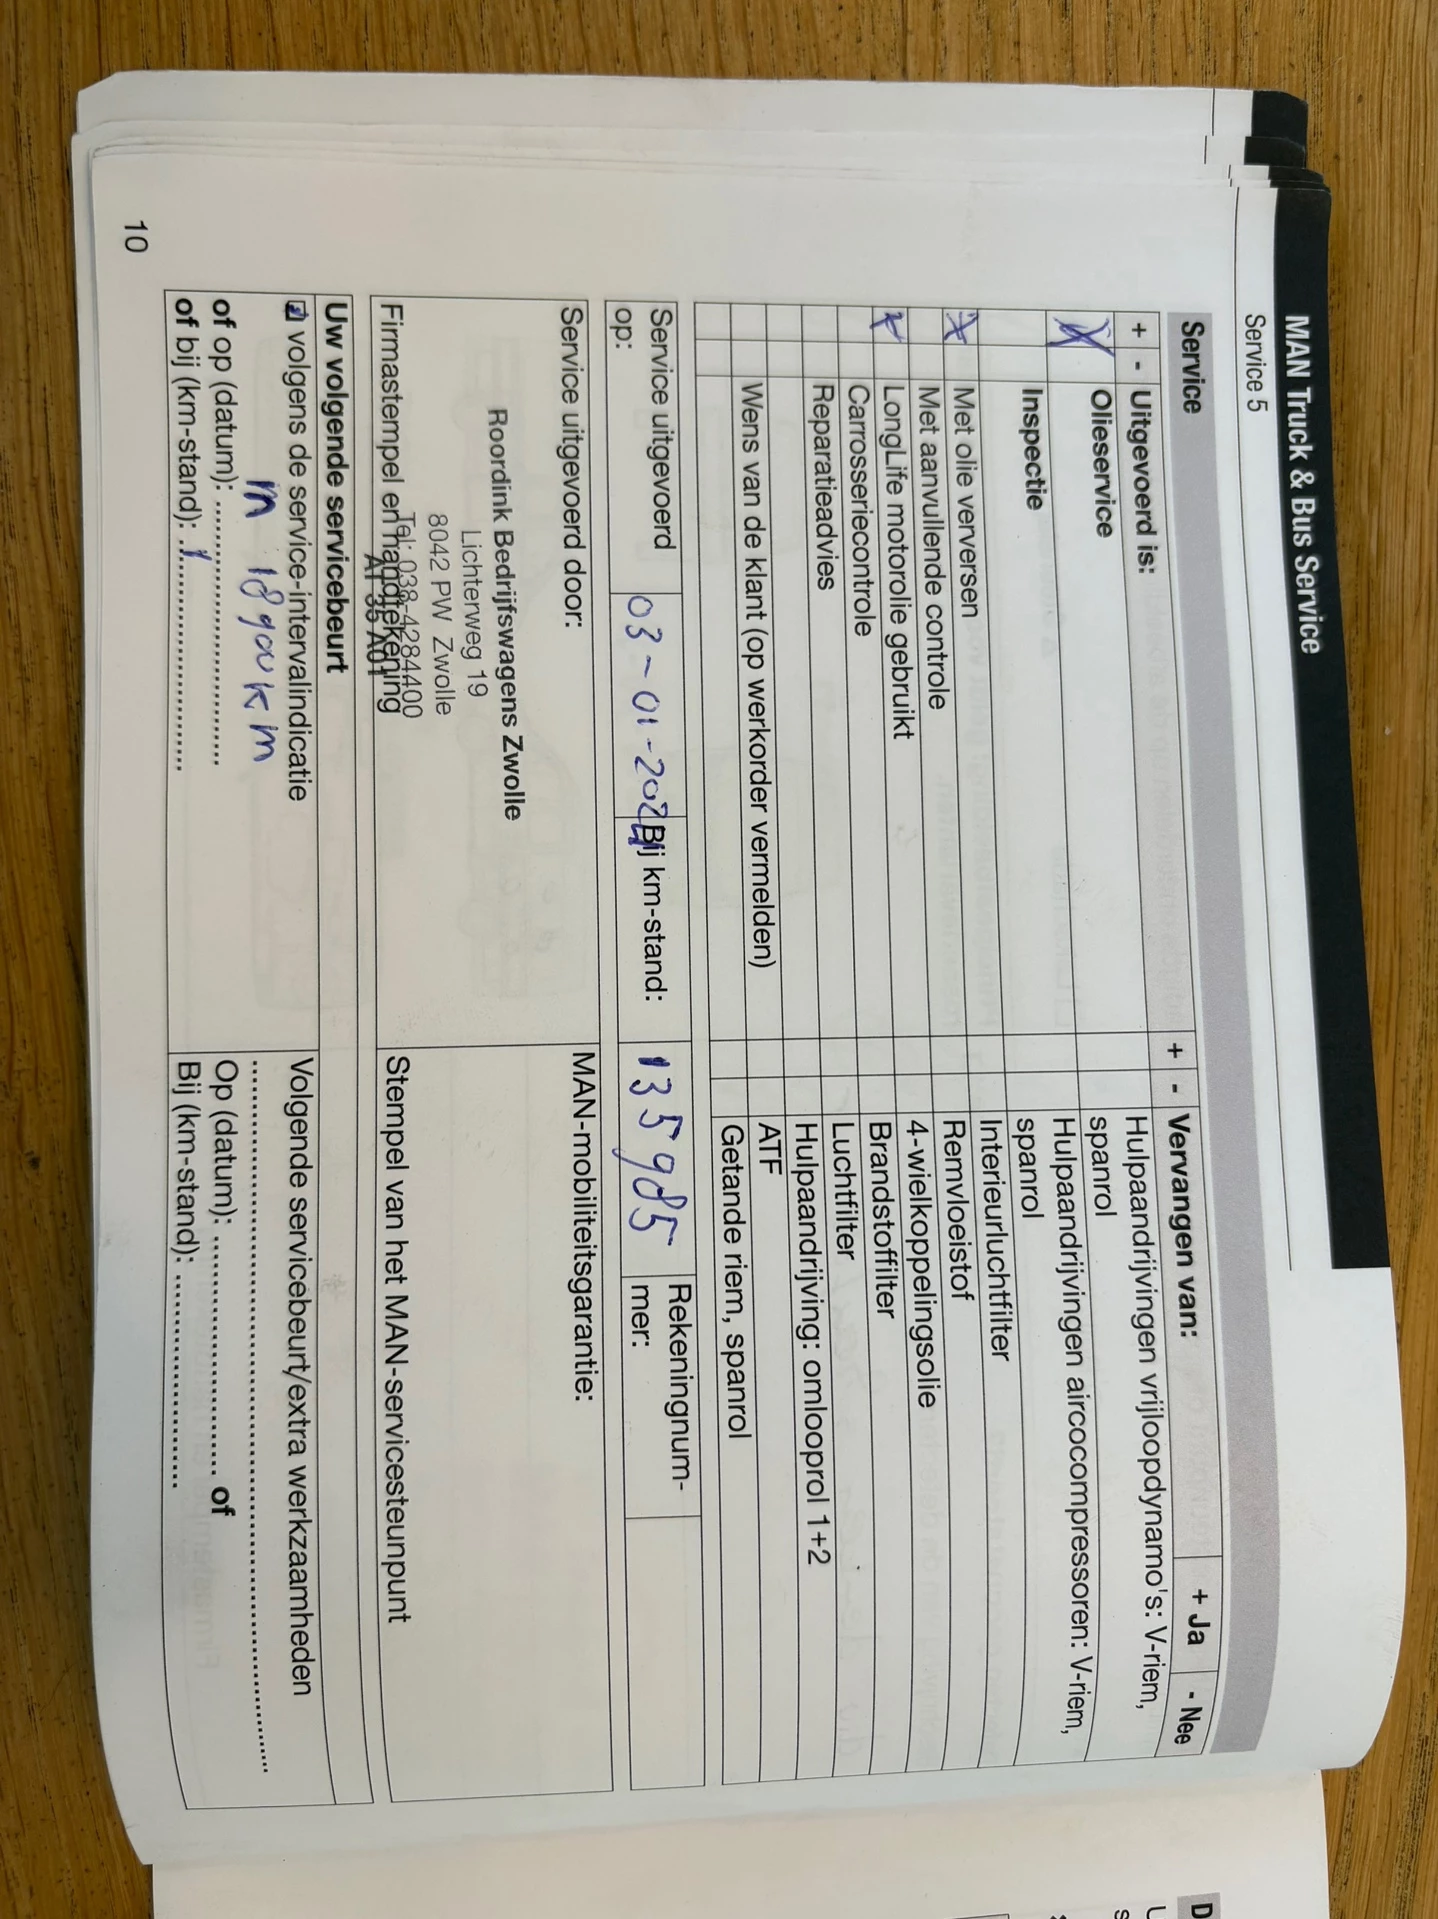 MAN Truck & Bus Service
Service 5
Service + Ja - Nee
+ - Uitgevoerd is: + - Vervangen van:
Olieservice
Hulpaandrijvingen vrijloopdynamo's: V-riem,
spanrol
Inspectie
Hulpaandrijvingen aircocompressoren: V-riem,
spanrol
Met olie verversen
Interieurluchtfilter
Met aanvullende controle
Remvloeistof
LongLife motorolie gebruikt
4-wielkoppelingsolie
Carrosseriecontrole
Brandstoffilter
Reparatieadvies
Luchtfilter
Hulpaandrijving: omlooprol 1+2
Wens van de klant (op werkorder vermelden)
ATF
Getande riem, spanrol
Service uitgevoerd
op:
03-01-2024
Bij km-stand:
135985
Rekeningnum-
mer:
Service uitgevoerd door:
Roordink Bedrijfswagens Zwolle
Lichterweg 19
8042 PW Zwolle
Tel: 038-4284400
AT 35 A01
Firmastempel en handtekening
MAN-mobiliteitsgarantie:
Stempel van het MAN-servicesteunpunt
Uw volgende servicebeurt
volgens de service-intervalindicatie
of op (datum):
of bij (km-stand):
Volgende servicebeurt/extra werkzaamheden
Op (datum): of
Bij (km-stand):
10